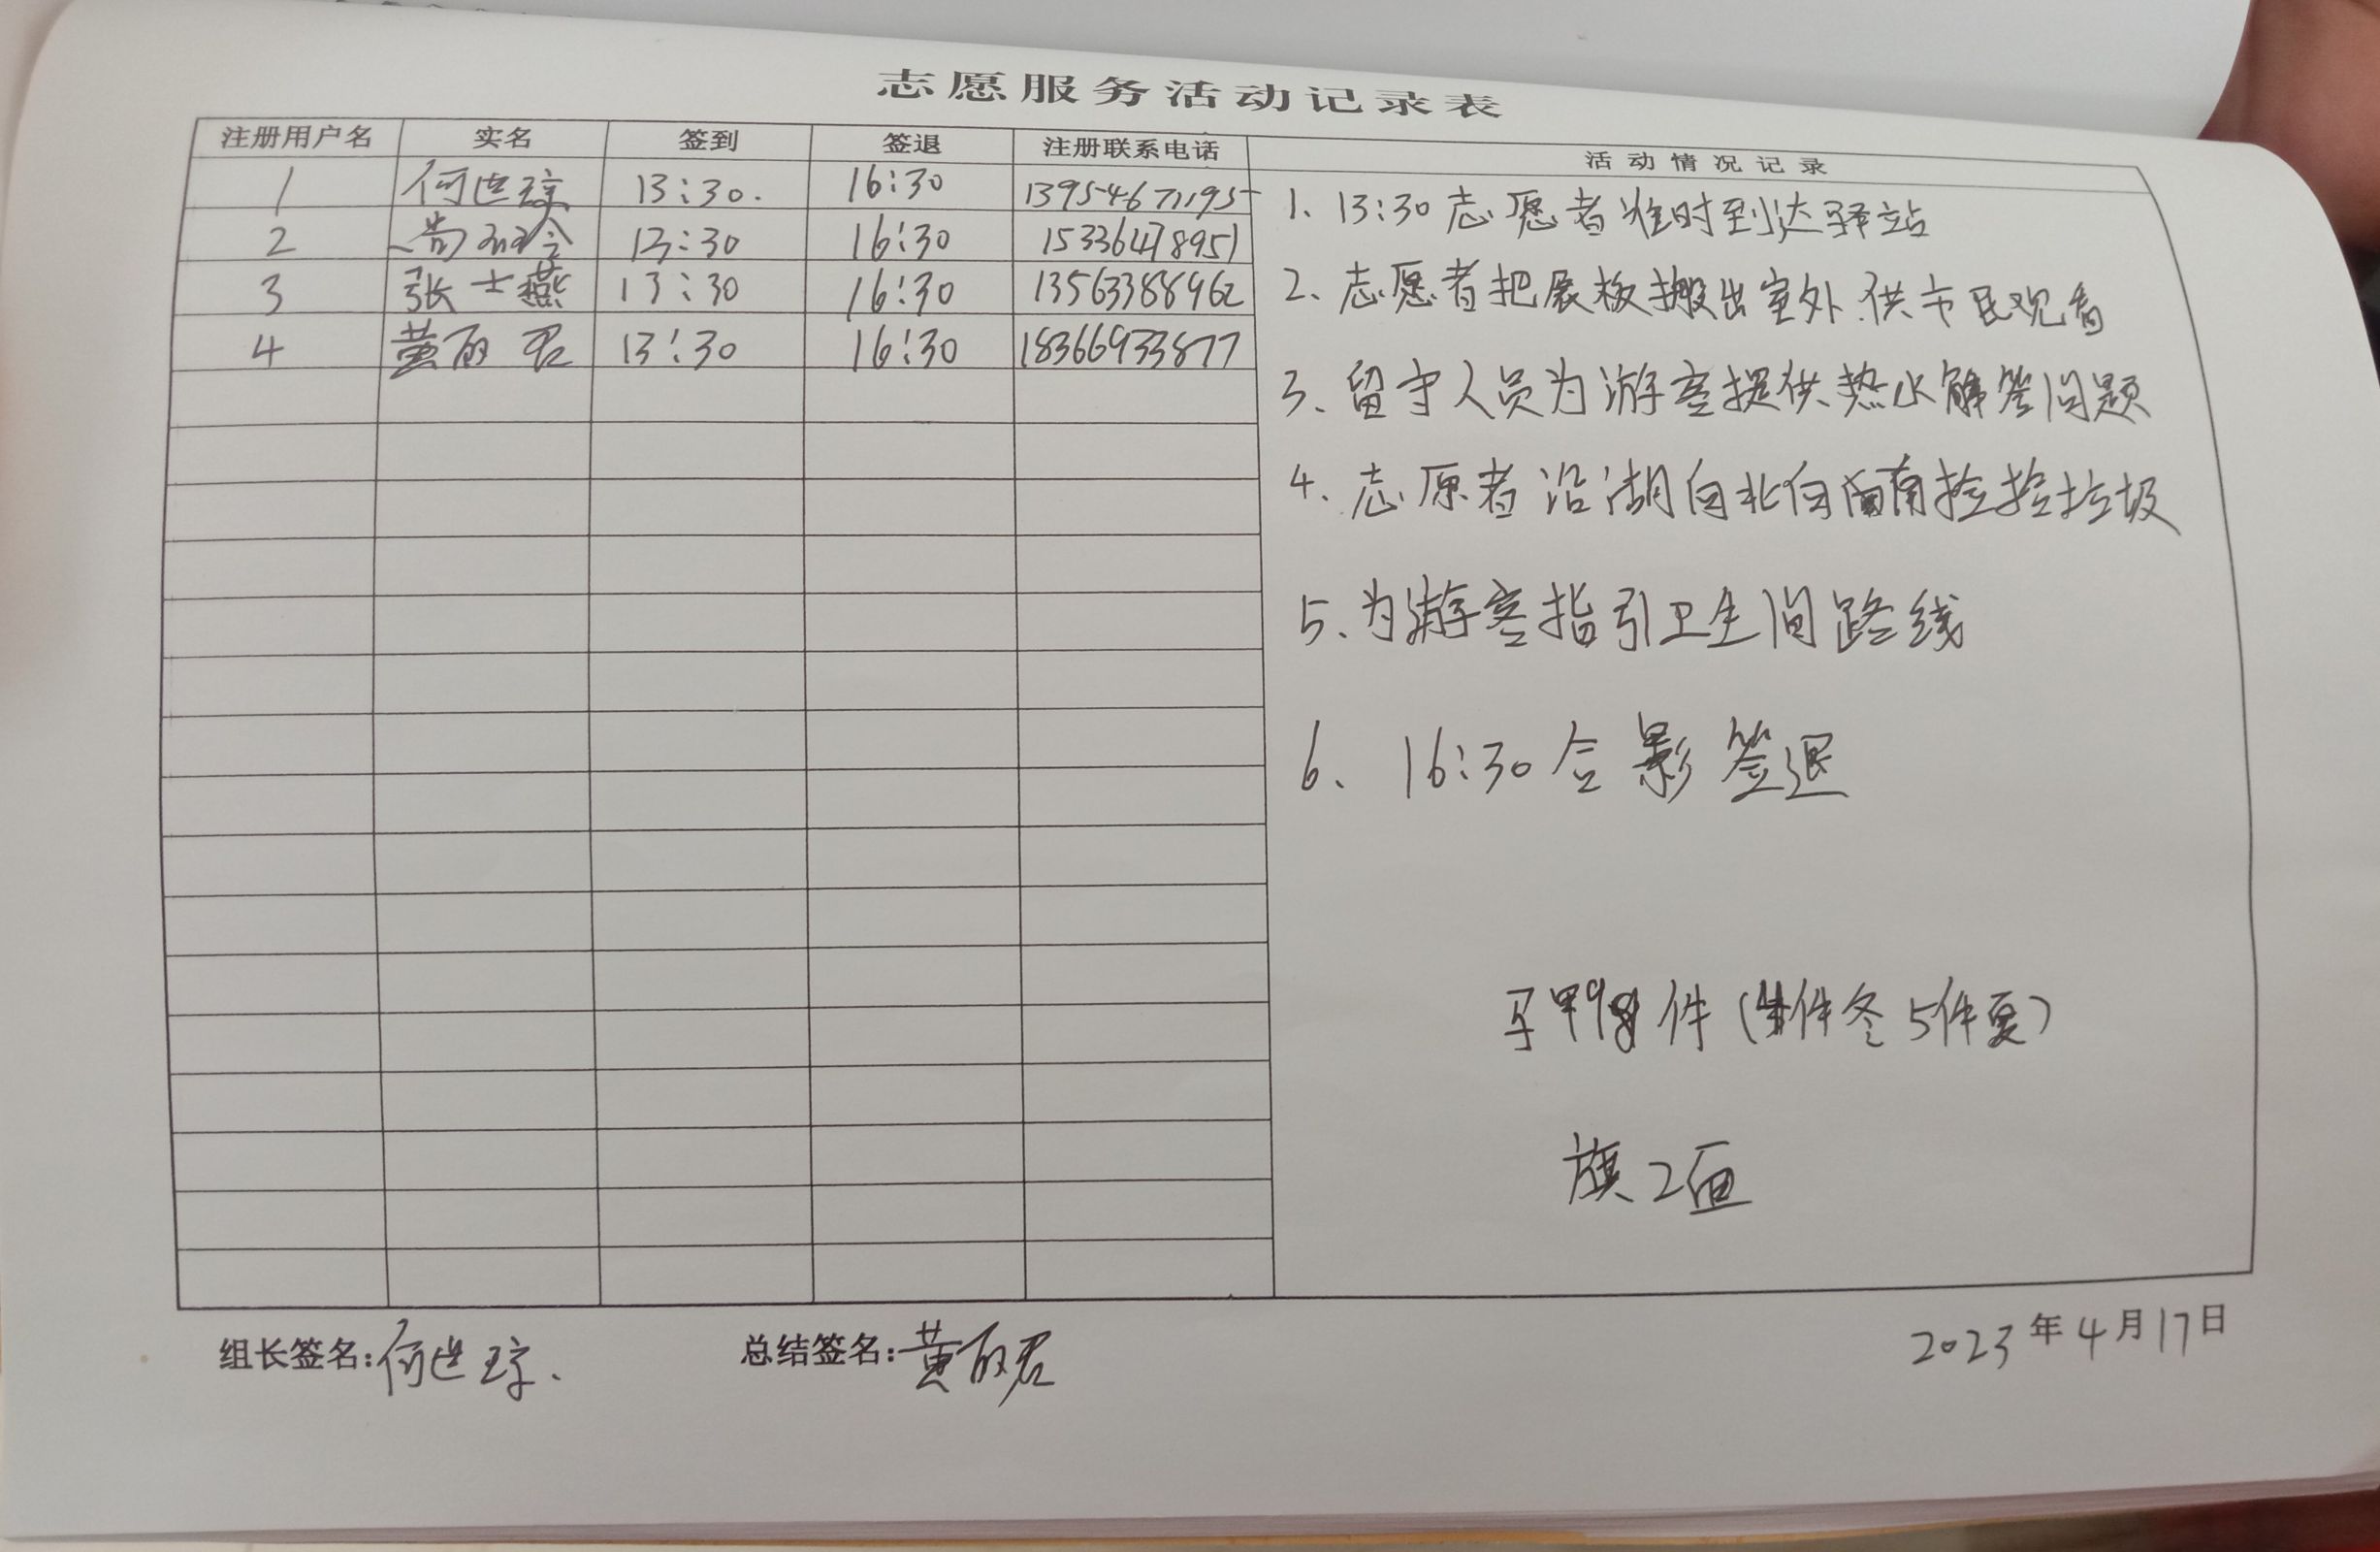 志愿服务活动记录表
注册用户名 实名 签到 签退 注册联系电话 活动情况记录
1 何世琼 13:30. 16:30 13954671195
2 13:30 16:30 15336478951
3 张士燕 13:30 16:30 13563388962
4 黄丽君 13:30 16:30 18366933877
1、13:30志愿者准时到达驿站
2、志愿者把展板搬出室外.供市民观看
3、留守人员为游客提供热水解答问题
4、志愿者沿湖自北向南捡捡垃圾
5、为游客指引卫生间路线
6、16:30合影签退
马甲9件(4件冬5件夏)
旗2面
组长签名:何世琼.
总结签名:黄丽君
2023年4月17日